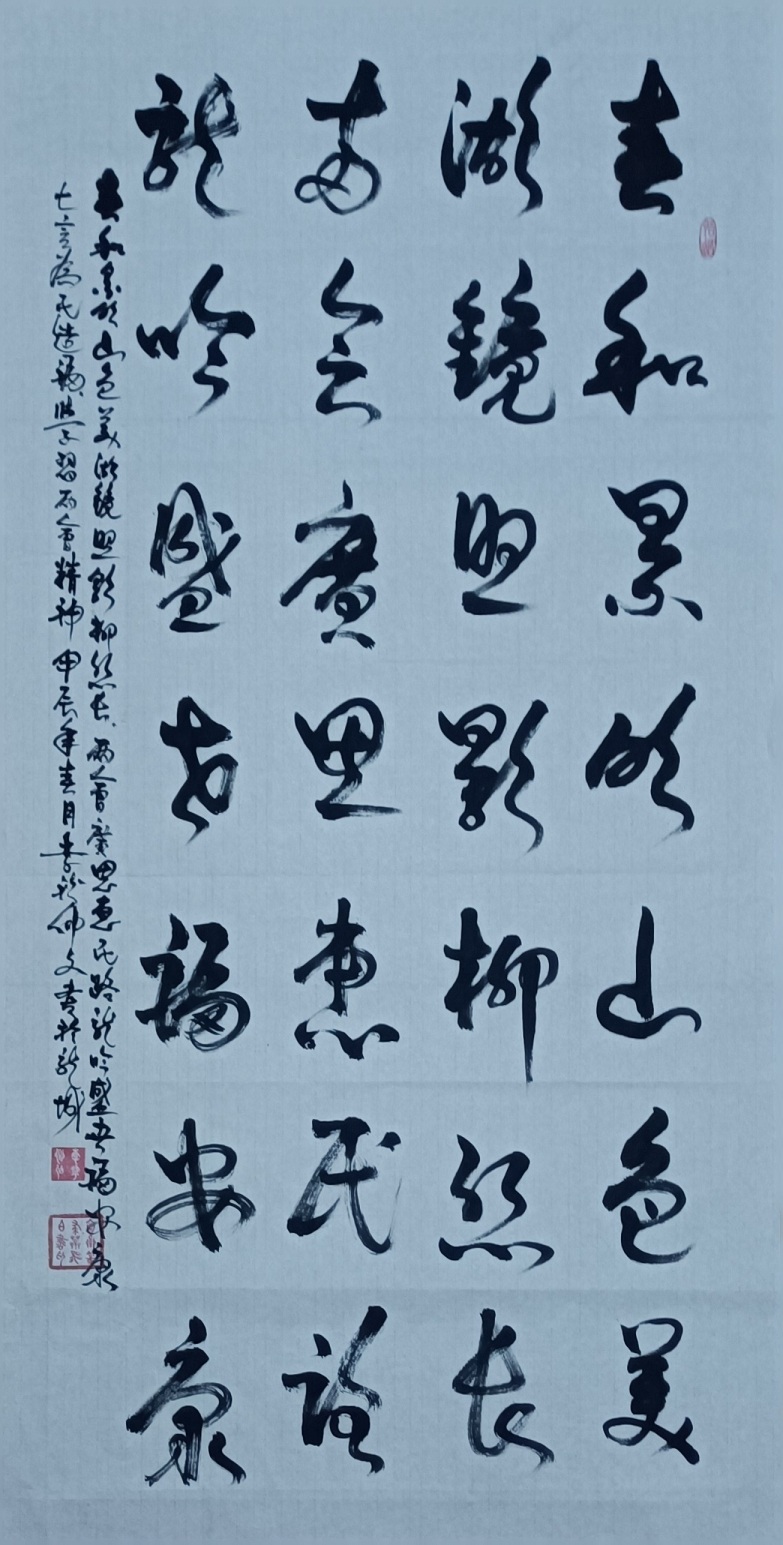 春和景明山色美
湖镜照影柳丝长
两会广思惠民路
龙吟盛世福安康
春和景明山色美湖镜照影柳丝长两会广思惠民路龙吟盛世福安康
七言为民造福学习两会精神甲辰年春月李仲文书于龙城